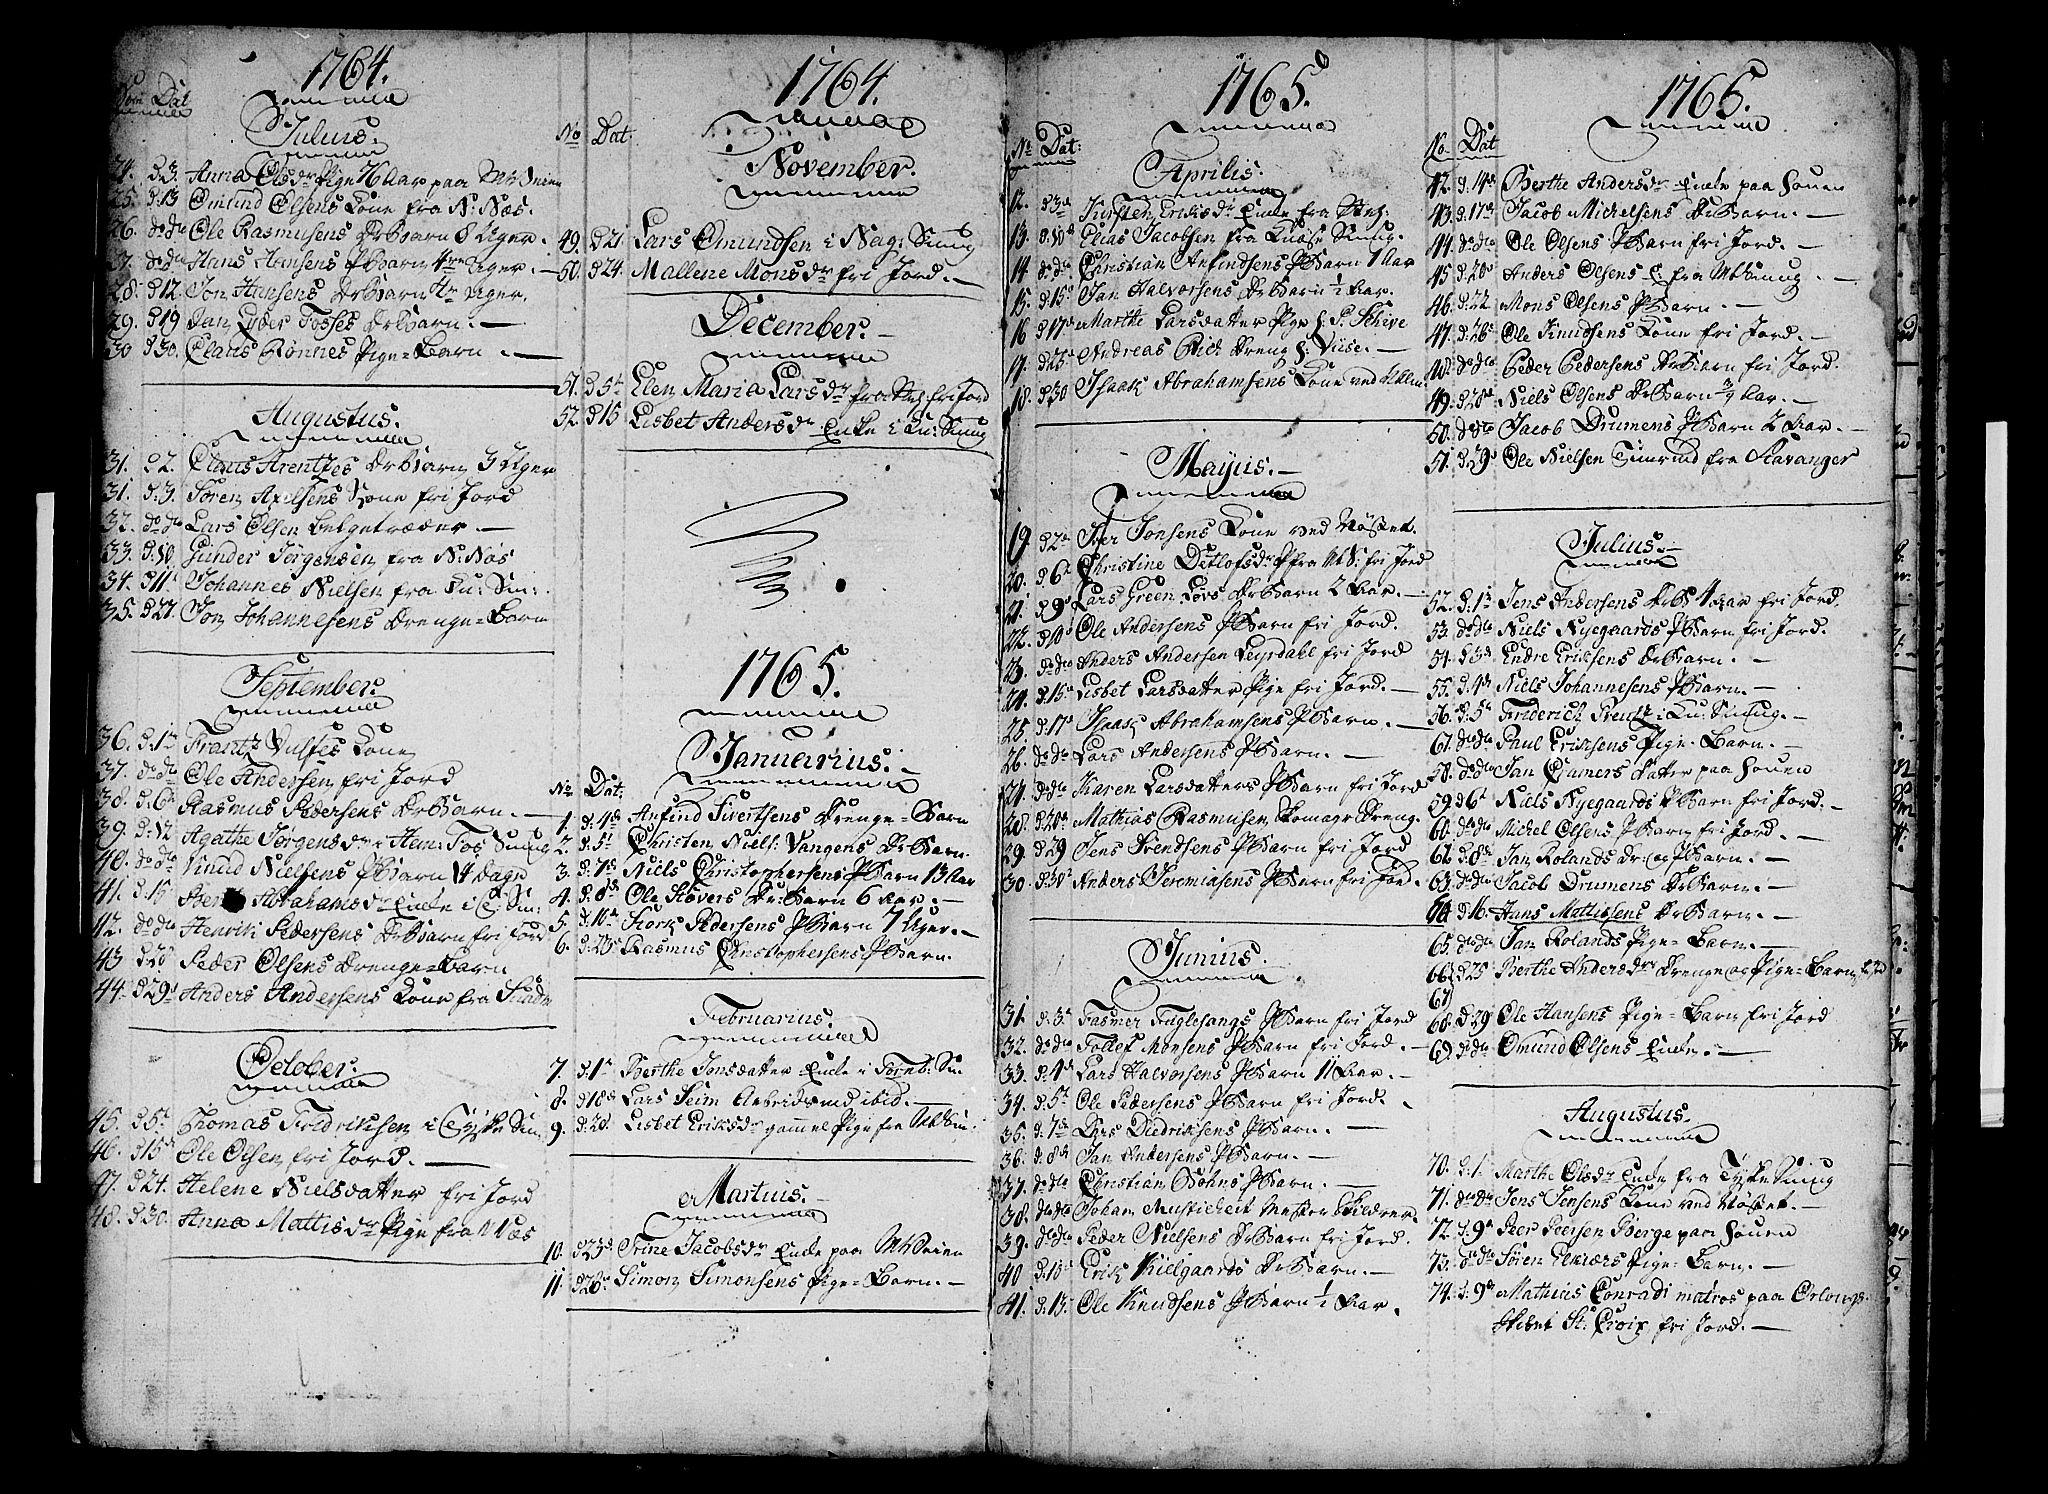 1764.
Dat
Julius.
24. d 3. Anna Olsdr Pige 76 Aar paa
25. d. 13 Omund Olsens Kone fra N: Næs.
26. do do Ole Rasmusens DrBarn 8 Uger.
27. do do Hans Hansens PBarn Uger.
28. d 12. Jon Hansens DrBarn Uger.
29. d 19 Jan Lyder Fosses DrBarn.
30 d 30. Claus Rønnes Pige-Barn.
Augustus.
31. d 2. Claus Arentzes DrBarn 3 Uger
31. d. 3. Søren Axelsens Kone fri Jord
32. do do Lars Olsen Belgetræder.
33. d. 10 Gunder Jørgensen fra N: Næs
34. d 11 Johannes Nielsen fra
35. d 27. Jon Johannesens Drenge-Barn
September.
36. d. 1 Frantz Kone
37. do do Ole Andersen fri Jord
38. d. 6 Rasmus Pedersens DrBarn.
39. d. 12 Agathe Jørgensdr
40. do do Knud Nielsens PBarn 14 Dage
41. d. 15 Abrahamsdr Enke i
42. do do Henrik Pedersens DrBarn fri Jord
43 d 28 Peder Olsens Drenge-Barn
44 d 29 Anders Andersens Kone fra
October.
45. d 5 Thomas Fredriksen i
46. d 15 Ole Olsen fri Jord.
47. d 24. Helene Nielsdatter fri Jord
48. d 30. Anna Mattisdr Pige fra Næs
1764.
No Dat
November.
49. d 21. Lars Omundsen i Smug
50. d 24. Mallene Monsdr fri Jord.
December.
51. d. 5 Elen Maria Larsdr fra fri Jord
52. d 15 Lisbet Andersdr Enke i Smug
1765.
Januarius.
No Dat:
1. d. 4 Anfind Sivertsens Drenge-Barn
2. d. 5 Christen Niels: Vangens DrBarn.
3. d. 7 Niels Christophersens PBarn 13 Aar
4. d. 8 Ole Støvers Dr: Barn 6 Aar.
5. d. 10 Pedersens PBarn 7 Uger.
6. d: 23 Rasmus Christophersens PBarn.
Februarius.
7. d. 1 Berthe Jonsdatter Enke i
8. d 18 Lars Seim Arbeidsmd ibid.
9. d. 20. Lisbet Eriksdr gammel Pige fra
Martius.
10. d 23 Trine Jacobsdr Enke paa
11 d 26 Simon Simonsens Pige-Barn.
1765.
No Dat:
Aprilis.
12. d 3 Kirsten Eriksdr Enke fra
13. d. 10 Elias Jacobsen fra Smug.
14 do do Christian Anfindsens PBarn 1 Aar
15. d. 15 Jan Halvorsens DrBarn ½ Aar.
16 d 17 Marthe Larsdatter Pige
17. d 23 Andreas Dreng
18. d 30 Isaak Abrahamsens Kone ved
Mayus.
19 d 2 Iver Jonsens Kone ved Nøstet.
20. d 6 Christine Detlofsdr fri Jord
21. d 9 Lars Green DrBarn 2 Aar.
22. d 10 Ole Andersens PBarn fri Jord.
23. do do Anders Andersen Leyrdahl fri Jord
24. d. 15 Lisbet Larsdatter Pige fri Jord.
25. d. 17 Isaak Abrahamsens PBarn.
26. do do Lars Andersens PBarn.
24. do do Karen Larsdatters PBarn fri Jord
28. d. 20 Mathias Rasmusen Dreng.
29. d 29 Jens Svendsens PBarn fri Jord
30. d. 30 Anders Jeremiasens PBarn fri Jord.
Junius.
31. d. 3 Fasmer Fuglesangs PBarn fri Jord
32. do do Tollef Monsens PBarn fri Jord.
33. d. 4 Lars Halvorsens PBarn 11 Aar.
34. d. 5 Ole Pedersens PBarn fri Jord.
35. d. 7 Diedriksens PBarn.
36. d. 8 Jan Andersens PBarn.
37. do do Christian Bøhns PBarn.
38. do do Johan
39. do do Peder Nielsens DrBarn fri Jord.
40 d. 10 Erik Kielgaards DrBarn.
41. d. 13. Ole Knudsens PBarn ½ Aar.
1765.
No. Dat
42. d. 14 Berthe Andersdr Enke paa
43. d. 17 Jacob Michelsens DrBarn.
44. do do Ole Olsens PBarn fri Jord.
45 d. 20 Anders Olsens
46. d. 22 Mons Olsens PBarn.
47. d. 26 Ole Knudsens Kone fri Jord.
48. do do Peder Pedersens DrBarn fri Jord.
49. d 28 Niels Olsens DrBarn Aar.
50. do do Jacob Drumens PBarn 2 Aar.
51. d. 29 Ole Nielsen fra Stavanger
Julius.
52. d. 1 Jens Andersens DrB 4 Aar fri Jord.
53. do do Niels Nyegaards PBarn fri Jord.
54. d 3 Endre Eriksens DrBarn.
55. d. 4 Niels Johannesens PBarn.
56. d: 5 Friderich i Smug.
57. do do Paul Eriksens Pige-Barn.
58. do do Jan Cramers Datter paa
59 d 6 Niels Nyegaards PBarn fri Jord.
60. do do Michel Olsens PBarn fri Jord.
62 d. 8 Jan Rolands Dr: og PBarn.
63. do do Jacob Drumens DrBarn.
64 d 16. Hans Mathissens DrBarn.
65. do do Jan Rolands Pige-Barn.
66 d 25 Berthe Andersdrs Drenge og Pige-Barn
67
68. d. 29 Ole Hansens Pige-Barn fri Jord
69. do do Omund Olsens Enke.
Augustus.
70. d. 1. Marthe Olsdr Enke fra Tyske Smug
71. do do Jens Jensens Kone ved Nøstet.
72. d. 9 Peer Peersen Berge paa
73. do do Søren Pige-Barn.
74. d. 9 Mathias Conradi matros paa Orlougs-
skibet St: Croix fri Jord.